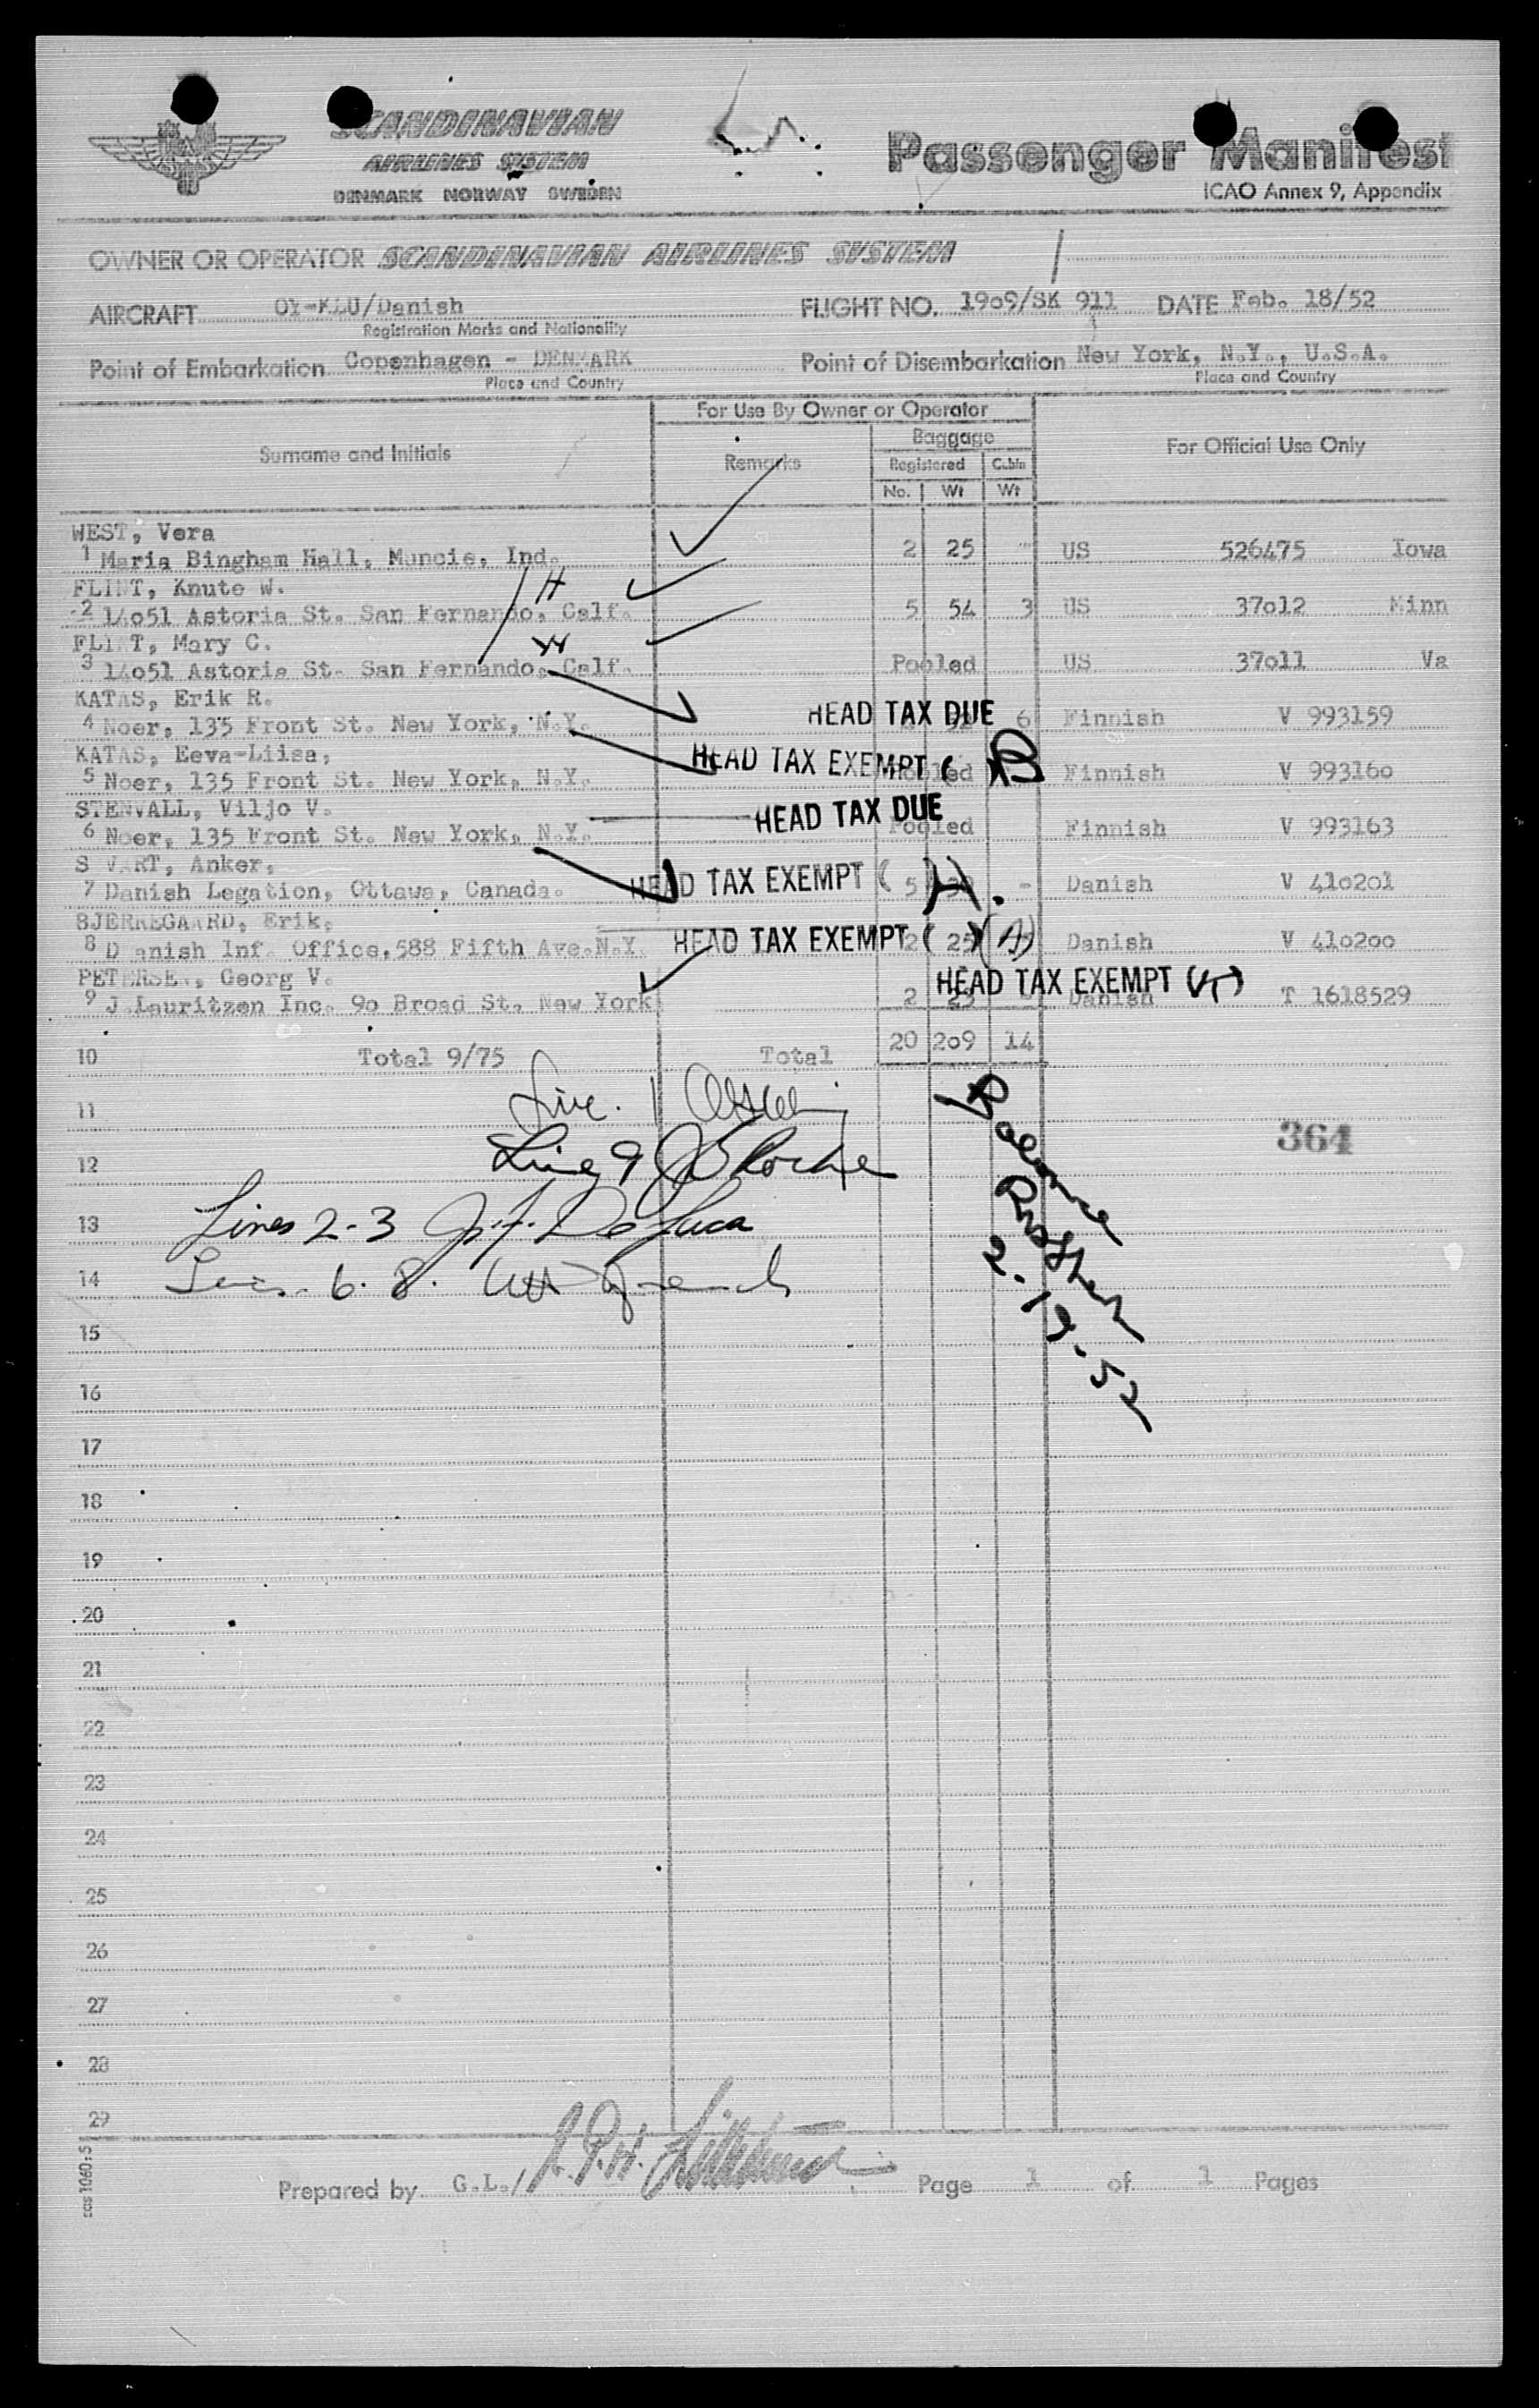 SCANDINAVIAN
AIRLINES SYSTEM
DENMARK NORWAY SWEDEN
Passenger Manifest
ICAO Annex 9, Appendix
OWNER OR OPERATOR SCANDINAVIAN AIRLINES SYSTEM
AIRCRAFT OY-KLU/Danish FLIGHT NO. 1909/SK 911 DATE Feb. 18/52
Registration Marks and Nationality
Point of Embarkation Copenhagen - DENMARK Point of Disembarkation New York, N.Y., U.S.A.
Place and Country Place and Country
For Use By Owner or Operator
Surname and Initials Remarks Baggage For Official Use Only
Registered Cabin
No. Wt Wt
WEST, Vera
1 Maria Bingham Hall, Muncie, Ind. 2 25 - US 526475 Iowa
FLINT, Knute W.
2 14051 Astoria St. San Fernando, Calf. H 5 54 3 US 37012 Minn
FLINT, Mary C.
3 14051 Astoria St. San Fernando, Calf. Pooled US 37011 Va
KATAS, Erik R.
4 Noer, 135 Front St. New York, N.Y. HEAD TAX DUE 6 Finnish V 993159
KATAS, Eeva-Liisa,
5 Noer, 135 Front St. New York, N.Y. HEAD TAX EXEMPT ( Pooled Finnish V 993160
STENVALL, Viljo V.
6 Noer, 135 Front St. New York, N.Y. HEAD TAX DUE Pooled Finnish V 993163
SVART, Anker,
7 Danish Legation, Ottawa, Canada. HEAD TAX EXEMPT ( H. 5 - Danish V 410201
BJERREGAARD, Erik,
8 Danish Inf. Office, 588 Fifth Ave.N.Y. HEAD TAX EXEMPT ( ) (A) 2 25 Danish V 410200
PETERSEN, Georg V.
9 J.Lauritzen Inc. 90 Broad St. New York 2 25 HEAD TAX EXEMPT Danish T 1618529
10 Total 9/75 Total 20 209 14
11
364
12 Line 9 Roche
13 Lines 2-3 J.F. DeLuca
14 6.8.
Balance
2.19.52
15
16
17
18
19
20
21
22
23
24
25
26
27
28
29
sas 1060:5
Prepared by G.L./ Page 1 of 1 Pages